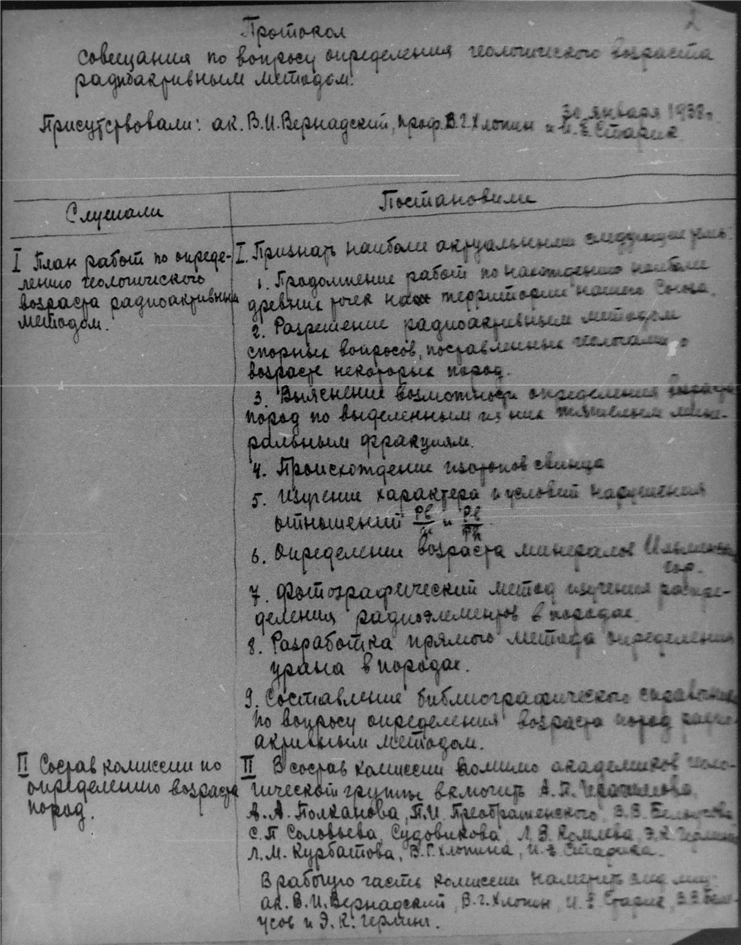 2
Протокол
совещания по вопросу определения геологического возраста
радиоактивным методом.
30 января 1938г.
Присутствовали: ак. В.И. Вернадский, проф. В.Г. Хлопин и И.Е. Старик
Слушали
Постановили
I План работ по опреде-
лению геологического
возраста радиоактивным
методом.
I. Признать наиболее актуальными следующие
1. Продолжение работ по нахождению наиболее
древних точек на территории нашего Союза.
2. Разрешение радиоактивным методом
спорных вопросов, поставленных геологами о
возрасте некоторых пород.
3. Выяснение возможности определения возраста
пород по выделенным из них тяжелым мине-
ральным фракциям.
4. Происхождение изотопов свинца
5. Изучение характера и условий нарушения
отношений Pb/U и Pb/Th
6. Определение возраста минералов Ильменских
гор.
7. Фотографический метод изучения распре-
деления радиоэлементов в породах.
8. Разработка прямого метода определения
урана в породах.
9. Составление библиографического справочника
по вопросу определения возраста пород радио-
активным методом.
II Состав комиссии по
определению возраста
пород.
II В состав комиссии помимо академиков геоло-
гической группы включить А.П. Герасимова,
А.А. Полканова, П.И. Преображенского, В.В. Белоусова
С.П. Соловьева, Судовикова, Л.В. Комлева, Э.К. Герлинга
Л.М. Курбатова, В.Г. Хлопина, И.Е. Старика.
В рабочую часть комиссии наметить
ак. В.И. Вернадский, В.Г. Хлопин, И.Е. Старик, В.В. Бело-
усов и Э.К. Герлинг.